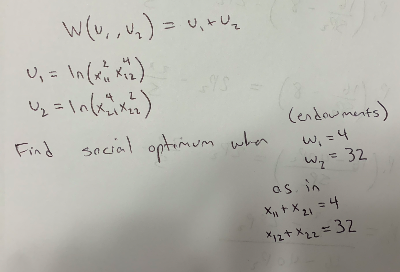 W(U₁, U₂) = U₁ + U₂
U₁ = ln(x₁₁² x₁₂⁴)
U₂ = ln(x₂₁⁴ x₂₂²)
(endowments)
Find social optimum when w₁ = 4
w₂ = 32
as in
x₁₁ + x₂₁ = 4
x₁₂ + x₂₂ = 32